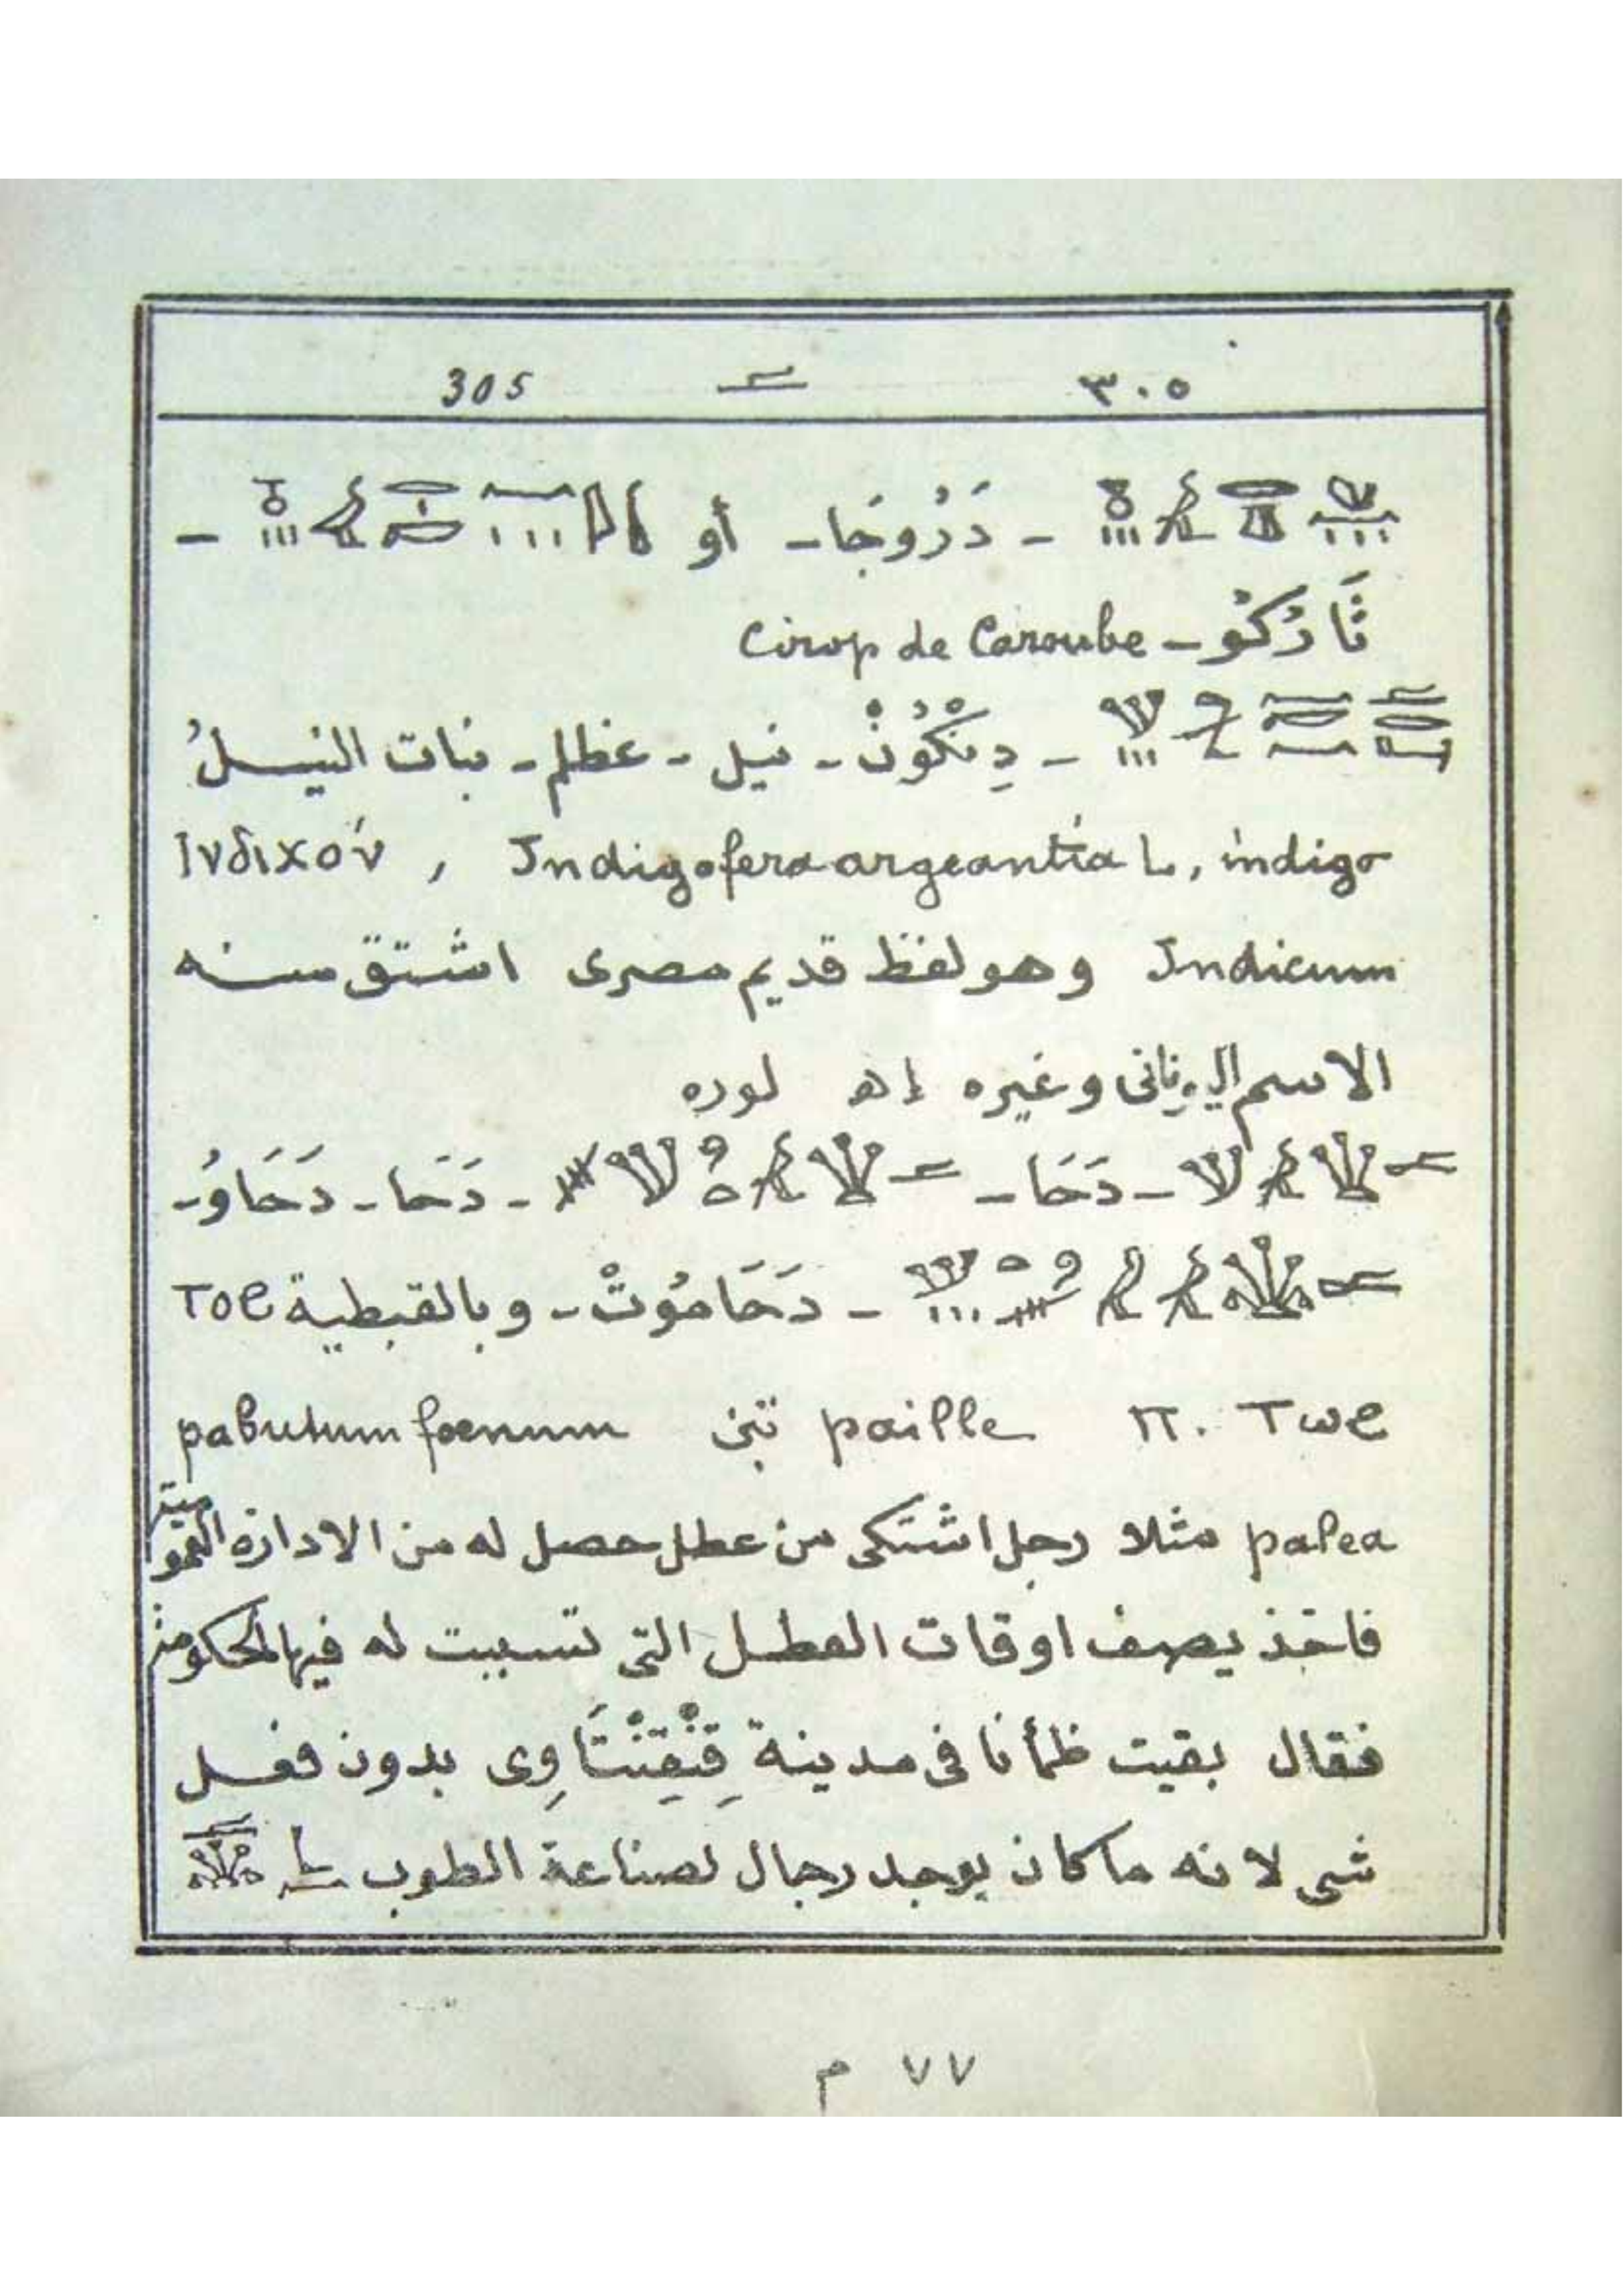 ٣٠٥ 305
- دَرُوجَا - أو -
ثَارُكُو - Cirop de Caroube
- دِنْكُونْ - نيل - عظلم - نبات النيل
Ινδιχόν , Indigofera argeantia L, indigo
Indicum وهو لفظ قديم مصرى اشتق منه
الاسم اليونانى وغيره إه لوره
- دَحَا - - دَحَا - دَحَاوُ -
- دَحَامُوتْ - وبالقبطية ⲧⲟϩ
ⲡ. ⲧⲱϩ paille تبن pabulum foenum
palea مثلا رجل اشتكى من عطل حصل له من الادارة العمومية
فاخذ يصف اوقات العطل التى تسببت له فيها الحكومة
فقال بقيت ظمأنا فى مدينة قِنْقِنْتَاوِى بدون فعل
شى لانه ما كان يوجد رجال لصناعة الطوب
٧٧ م